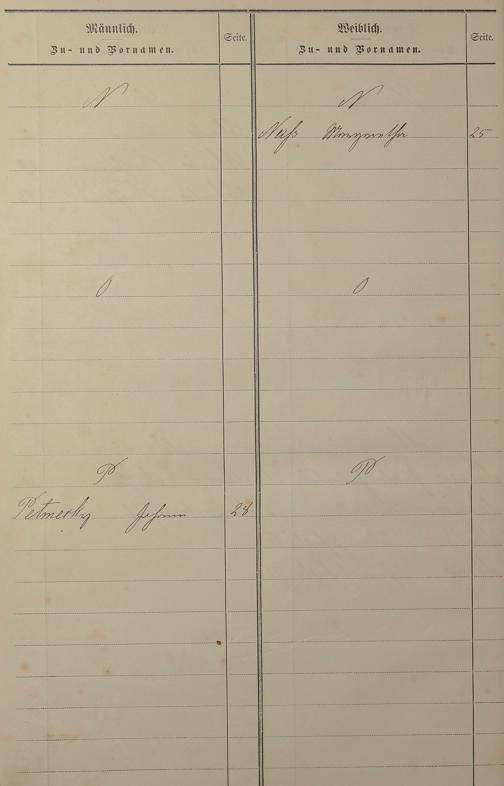 Männlich.
Zu- und Vornamen.
Seite.
Weiblich.
Zu- und Vornamen.
Seite.
N
N
Neuß Margaretha 25
O
O
P
P
Petmecky Johann 28